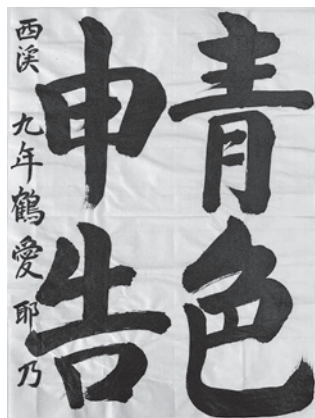 青色
申告
西溪 九年 鶴愛 耶乃